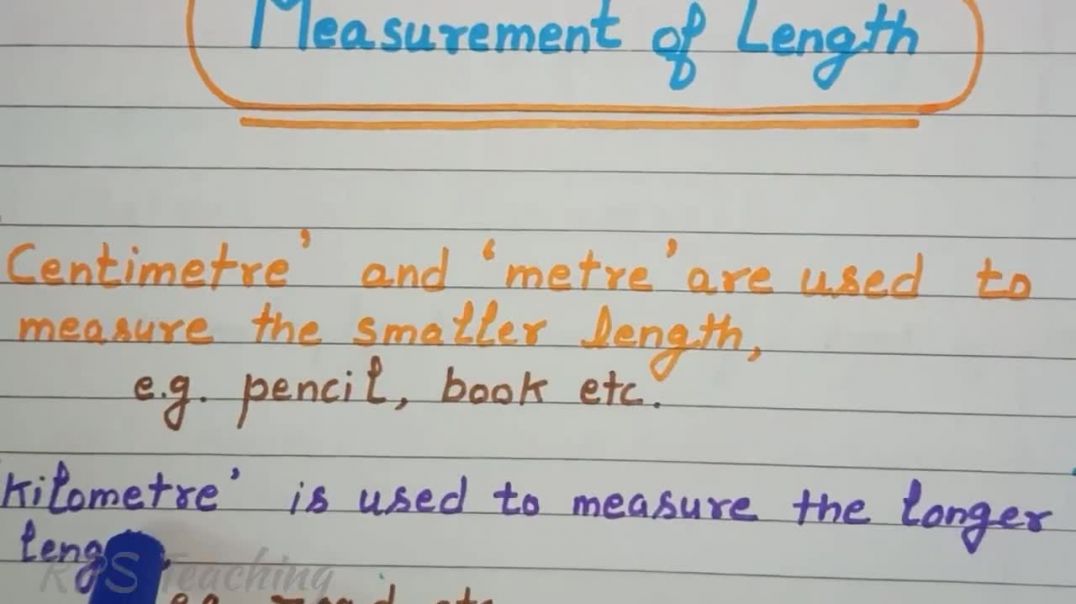 Measurement of Length
Centimetre' and 'metre' are used to
measure the smaller length,
e.g. pencil, book etc.
Kilometre' is used to measure the longer
RPS Teaching